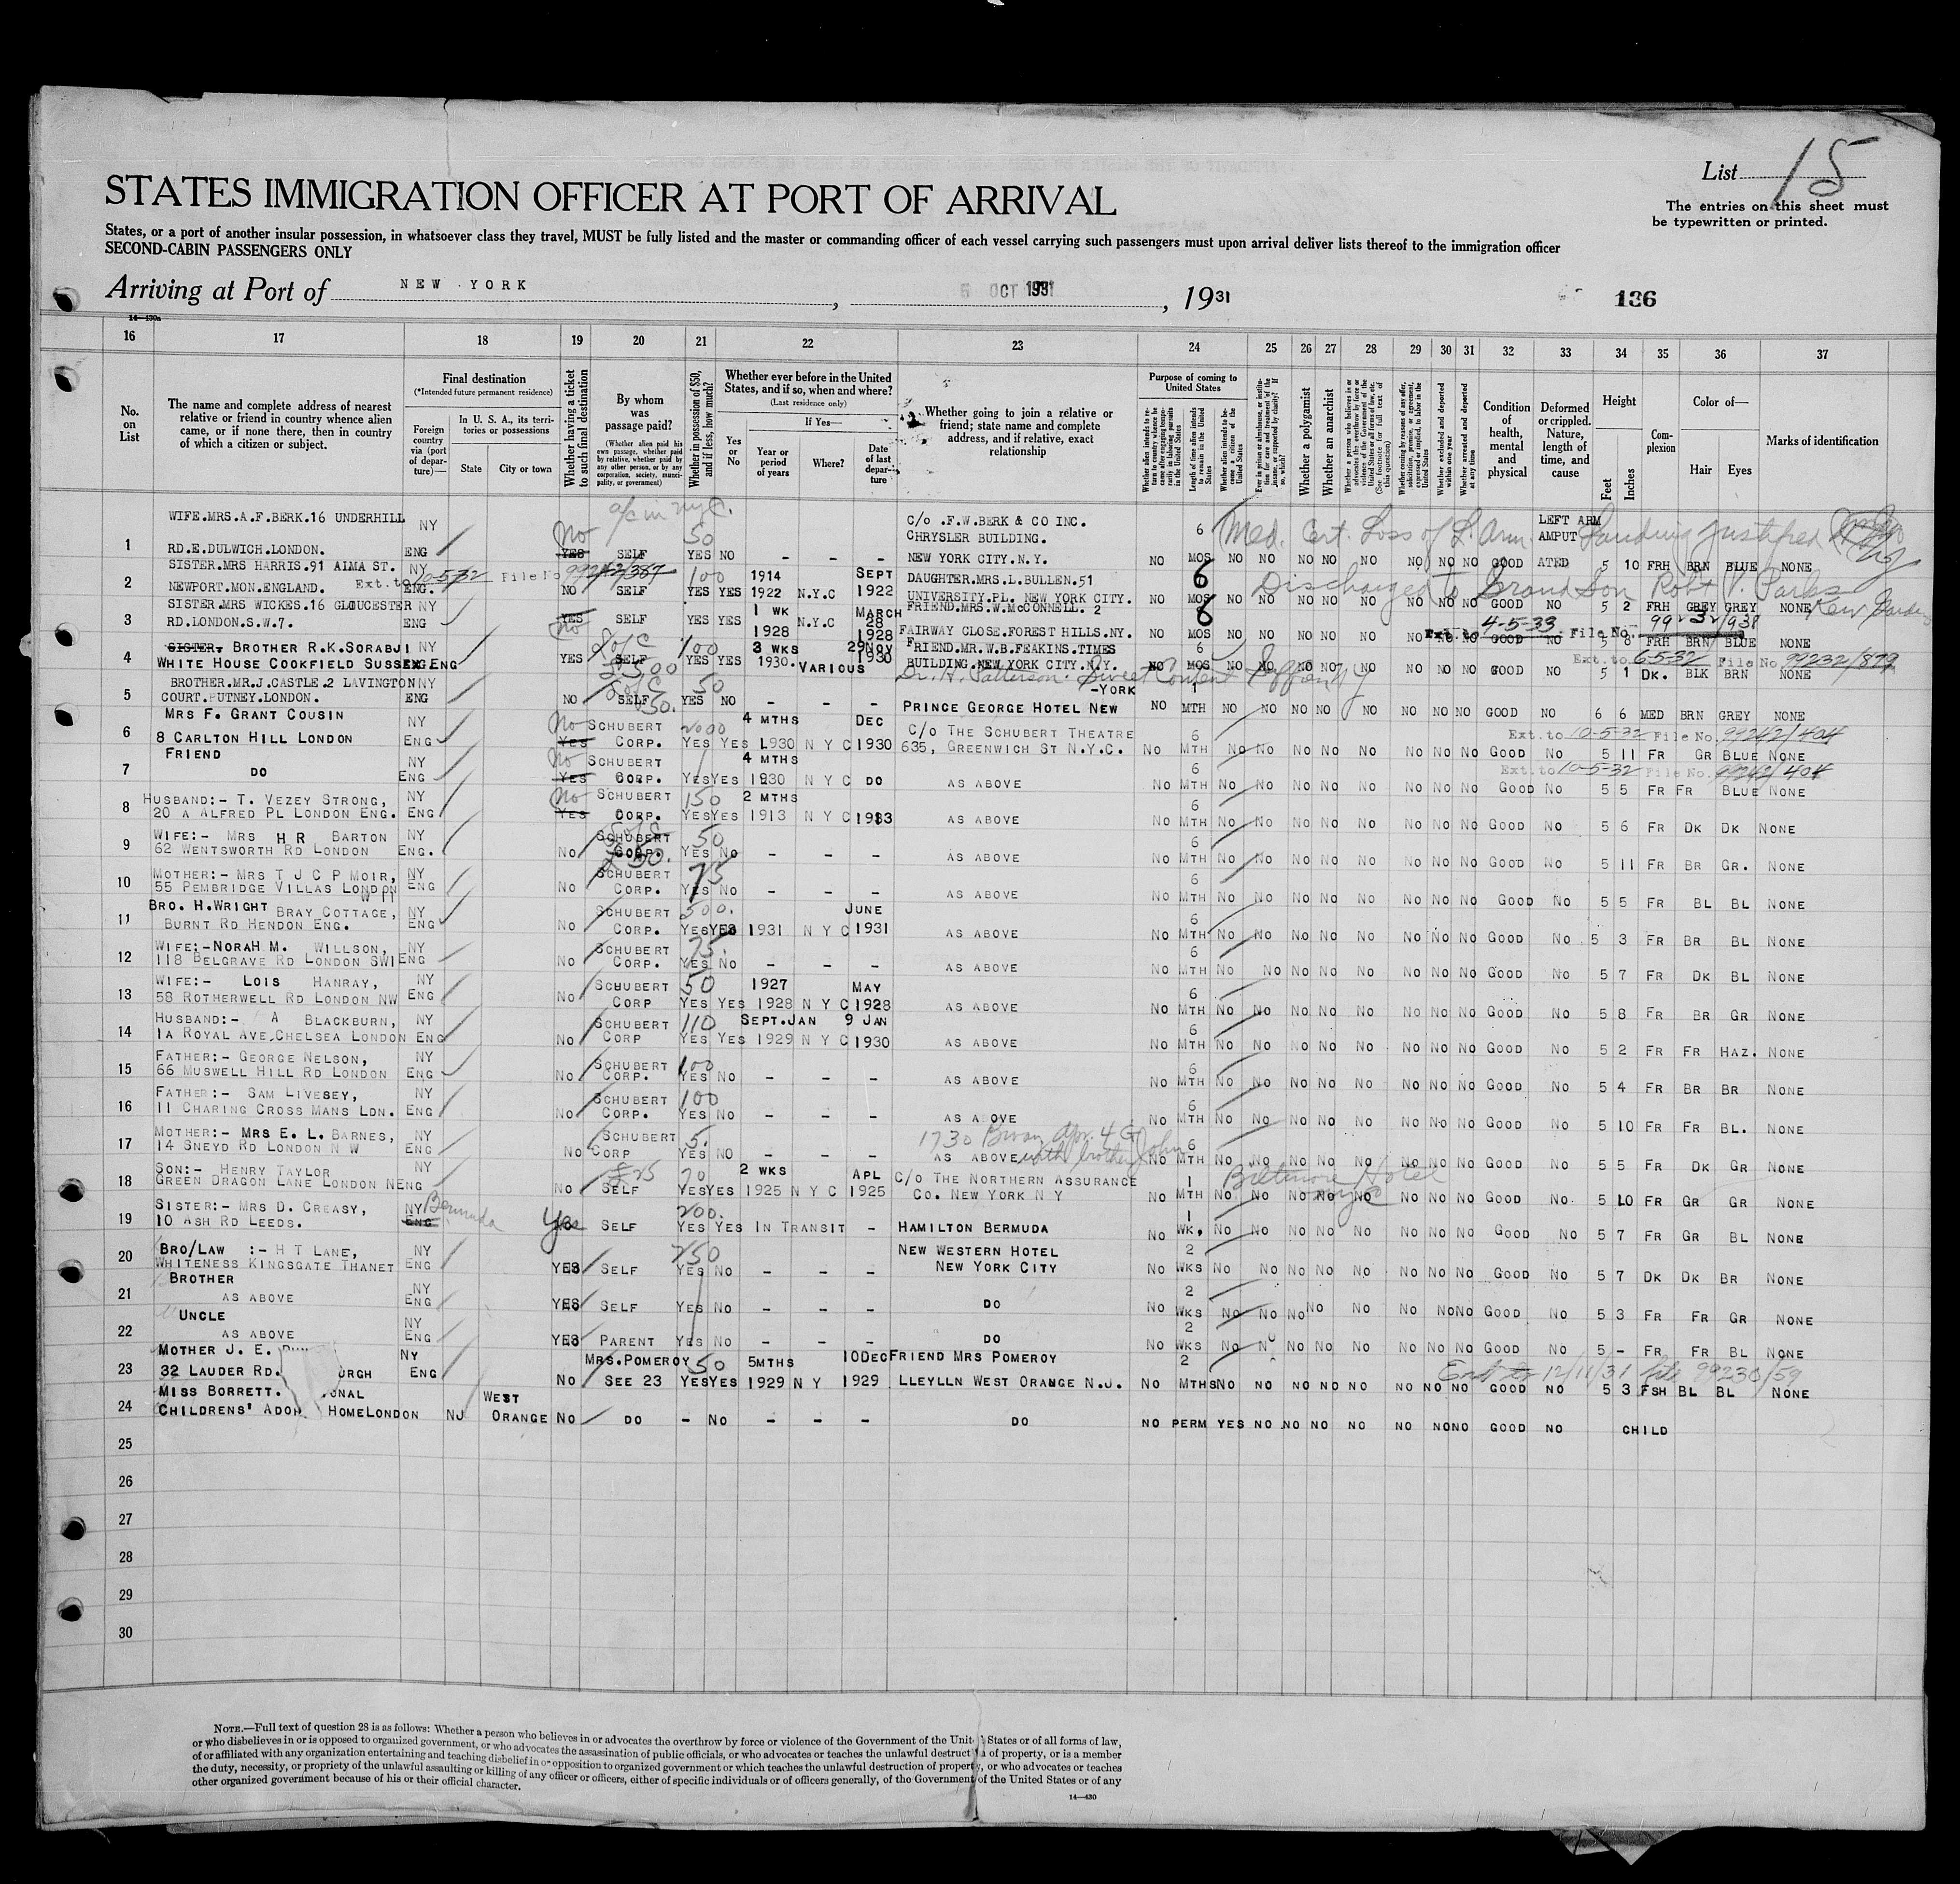 List 15
The entries on this sheet must
be typewritten or printed.
STATES IMMIGRATION OFFICER AT PORT OF ARRIVAL
States, or a port of another insular possession, in whatsoever class they travel, MUST be fully listed and the master or commanding officer of each vessel carrying such passengers must upon arrival deliver lists thereof to the immigration officer
SECOND-CABIN PASSENGERS ONLY
Arriving at Port of NEW YORK, 5 OCT 1931, 1931
136
14—430a
16 17 18 19 20 21 22 23 24 25 26 27 28 29 30 31 32 33 34 35 36 37
No. on List
The name and complete address of nearest relative or friend in country whence alien came, or if none there, then in country of which a citizen or subject.
Final destination
(*Intended future permanent residence)
Foreign country via (port of departure)—
In U. S. A., its territories or possessions
State
City or town
Whether having a ticket to such final destination
By whom was passage paid?
(Whether alien paid his own passage, whether paid by relative, whether paid by any other person, or by any corporation, society, municipality, or government)
Whether in possession of $50, and if less, how much?
Whether ever before in the United States, and if so, when and where?
(Last residence only)
Yes or No
If Yes—
Year or period of years
Where?
Date of last departure
Whether going to join a relative or friend; state name and complete address, and if relative, exact relationship
Purpose of coming to United States
Whether alien intends to return to country whence he came after engaging temporarily in laboring pursuits in the United States
Length of time alien intends to remain in the United States
Whether alien intends to become a citizen of the United States
Ever in prison or almshouse, or institution for care and treatment of the insane, or supported by charity? If so, which?
Whether a polygamist
Whether an anarchist
Whether coming by reasons of any offer, solicitation, promise, or agreement, expressed or implied, to labor in the United States
Whether excluded and deported within one year
Whether arrested and deported at any time
Condition of health, mental and physical
Deformed or crippled. Nature, length of time, and cause
Height
Feet
Inches
Complexion
Color of—
Hair
Eyes
Marks of identification
WIFE.MRS.A.F.BERK.16 UNDERHILL NY 50 C/o .F.W.BERK & CO INC. 6 Med. Cert. Loss of L. Arm. LEFT ARM Landing justified
CHRYSLER BUILDING. AMPUT
1 RD.E.DULWICH.LONDON. ENG No YES SELF YES NO - - - NEW YORK CITY.N.Y. NO MOS NO NO NO NO NO NO NO NO GOOD ATED 5 10 FRH BRN BLUE NONE
SISTER.MRS HARRIS.91 ALMA ST. NY 100 1914 SEPT DAUGHTER.MRS.L.BULLEN.51 6 Discharged to Grandson Robt V. Parks
Ext. to 10-5-32 File No 99242/387
2 NEWPORT.MON.ENGLAND. ENG. NO SELF YES YES 1922 N.Y.C 1922 UNIVERSITY.PL. NEW YORK CITY. NO MOS NO NO NO NO NO NO NO NO GOOD NO 5 2 FRH GREY GREY NONE
SISTER.MRS WICKES.16 GLOUCESTER NY 1 WK MARCH FRIEND.MRS.W.McCONNELL. 2 6
3 RD.LONDON.S.W.7. ENG YES No SELF YES YES 1928 N.Y.C 28 1928 FAIRWAY CLOSE.FOREST HILLS.NY. NO MOS NO NO NO NO NO NO NO NO GOOD NO 5 8 FRH BRN BLUE NONE
Ext. to 4-5-33 File No.
SISTER. BROTHER R.K.SORABJI NY 100 3 WKS 29NOV FRIEND.MR.W.B.FEAKINS.TIMES 6 Ext. to 6-5-32 File No. 99232/879
4 WHITE HOUSE COOKFIELD SUSSEX ENG YES SELF YES YES 1930. VARIOUS 1930 BUILDING.NEW YORK CITY.N.Y. NO MOS NO NO NO NO NO NO NO NO GOOD NO 5 1 DK. BLK BRN NONE
BROTHER.MR.J.CASTLE.2 LAVINGTON NY 50 Dr. H. Patterson. Sweet Content -YORK 1
5 COURT.PUTNEY.LONDON. ENG NO SELF YES NO - - - PRINCE GEORGE HOTEL NEW NO MTH NO NO NO NO NO NO NO NO GOOD NO 6 6 MED BRN GREY NONE
MRS F. GRANT COUSIN NY No SCHUBERT 2000 4 MTHS DEC C/O THE SCHUBERT THEATRE 6 Ext. to 10-5-32 File No. 99242/404
6 8 CARLTON HILL LONDON ENG YES CORP. YES YES 1930 N Y C 1930 635, GREENWICH ST N.Y.C. NO MTH NO NO NO NO NO NO NO NO GOOD NO 5 11 FR GR BLUE NONE
FRIEND NY No SCHUBERT 4 MTHS 6 Ext. to 10-5-32 File No. 99242/404
7 DO ENG YES CORP. YES YES 1930 N Y C DO AS ABOVE NO MTH NO NO NO NO NO NO NO NO GOOD NO 5 5 FR FR BLUE NONE
HUSBAND:- T. VEZEY STRONG, NY No SCHUBERT 150 2 MTHS 6
8 20 A ALFRED PL LONDON ENG. ENG YES CORP. YES YES 1913 N Y C 1913 AS ABOVE NO MTH NO NO NO NO NO NO NO NO GOOD NO 5 6 FR DK DK NONE
WIFE:- MRS H R BARTON NY SCHUBERT 50 6
9 62 WENTSWORTH RD LONDON ENG. NO CORP. YES NO - - - AS ABOVE NO MTH NO NO NO NO NO NO NO NO GOOD NO 5 11 FR BR GR. NONE
MOTHER:- MRS T J C P MOIR, NY SCHUBERT 75 6
10 55 PEMBRIDGE VILLAS LONDON W 11 ENG NO CORP. YES NO - - - AS ABOVE NO MTH NO NO NO NO NO NO NO NO GOOD NO 5 5 FR BL BL NONE
BRO. H.WRIGHT BRAY COTTAGE, NY SCHUBERT 500. JUNE 6
11 BURNT RD HENDON ENG. ENG NO CORP. YES YES 1931 N Y C 1931 AS ABOVE NO MTH NO NO NO NO NO NO NO NO GOOD NO 5 3 FR BR BL NONE
WIFE:-NORAH M. WILLSON, NY SCHUBERT 75. 6
12 118 BELGRAVE RD LONDON SW1 ENG NO CORP. YES NO - - - AS ABOVE NO MTH NO NO NO NO NO NO NO NO GOOD NO 5 7 FR DK BL NONE
WIFE:- LOIS HANRAY, NY SCHUBERT 50 1927 MAY 6
13 58 ROTHERWELL RD LONDON NW ENG NO CORP YES YES 1928 N Y C 1928 AS ABOVE NO MTH NO NO NO NO NO NO NO NO GOOD NO 5 8 FR BR GR NONE
HUSBAND:- A BLACKBURN, NY SCHUBERT 110 SEPT.JAN 9 JAN 6
14 1A ROYAL AVE,CHELSEA LONDON ENG NO CORP YES YES 1929 N Y C 1930 AS ABOVE NO MTH NO NO NO NO NO NO NO NO GOOD NO 5 2 FR FR HAZ. NONE
FATHER:- GEORGE NELSON, NY SCHUBERT 100 6
15 66 MUSWELL HILL RD LONDON ENG NO CORP. YES NO - - - AS ABOVE NO MTH NO NO NO NO NO NO NO NO GOOD NO 5 4 FR BR BR NONE
FATHER:- SAM LIVESEY, NY SCHUBERT 100 6
16 11 CHARING CROSS MANS LDN. ENG NO CORP. YES NO - - - AS ABOVE NO MTH NO NO NO NO NO NO NO NO GOOD NO 5 10 FR FR BL. NONE
MOTHER:- MRS E. L. BARNES, NY SCHUBERT 5. 1730 6
17 14 SNEYD RD LONDON N W ENG NO CORP YES NO - - - AS ABOVE with brother John NO MTH NO NO NO NO NO NO NO NO GOOD NO 5 5 FR DK GR NONE
SON:- HENRY TAYLOR NY £25 70 2 WKS APL C/O THE NORTHERN ASSURANCE 1 Biltmore Hotel
18 GREEN DRAGON LANE LONDON N ENG NO SELF YES YES 1925 N Y C 1925 CO. NEW YORK N Y NO MTH NO NO NO NO NO NO NO NO GOOD NO. 5 10 FR GR GR NONE
SISTER:- MRS D. CREASY, NY Bermuda 200. 1
19 10 ASH RD LEEDS. ENG Yes SELF YES YES IN TRANSIT - HAMILTON BERMUDA NO WK. NO NO NO NO NO NO NO NO GOOD NO 5 7 FR GR BL NONE
BRO/LAW :- H T LANE, NY 750 NEW WESTERN HOTEL 2
20 WHITENESS KINGSGATE THANET ENG YES SELF YES NO - - - NEW YORK CITY NO WKS NO NO NO NO NO NO NO NO GOOD NO 5 7 DK DK BR NONE
BROTHER NY 2
21 AS ABOVE ENG YES SELF YES NO - - - DO NO WKS NO NO NO NO NO NO NO NO GOOD NO 5 3 FR FR GR NONE
UNCLE NY 2
22 AS ABOVE ENG YES PARENT YES NO - - - DO NO WKS NO NO NO NO NO NO NO NO GOOD NO 5 - FR FR BL NONE
MOTHER J. E. NY MRS.POMEROY 50 5MTHS 10DEC FRIEND MRS POMEROY 2 12/11/31 file 99230/59
23 32 LAUDER RD. URGH ENG NO SEE 23 YES YES 1929 N Y 1929 LLEYLLN WEST ORANGE N.J. NO MTHS NO NO NO NO NO NO NO NO GOOD NO 5 3 FSH BL BL NONE
MISS BORRETT. ONAL WEST
24 CHILDRENS' ADOP HOME LONDON NJ ORANGE NO DO - NO - - - DO NO PERM YES NO NO NO NO NO NO NO GOOD NO CHILD
25
26
27
28
29
30
NOTE.—Full text of question 28 is as follows: Whether a person who believes in or advocates the overthrow by force or violence of the Government of the United States or of all forms of law,
or who disbelieves in or is opposed to organized government, or who advocates the assassination of public officials, or who advocates or teaches the unlawful destruction of property, or is a member
of or affiliated with any organization entertaining and teaching disbelief in or opposition to organized government or which teaches the unlawful destruction of property, or who advocates or teaches
the duty, necessity, or propriety of the unlawful assaulting or killing of any officer or officers, either of specific individuals or of officers generally, of the Government of the United States or of any
other organized government because of his or their official character.
14—430